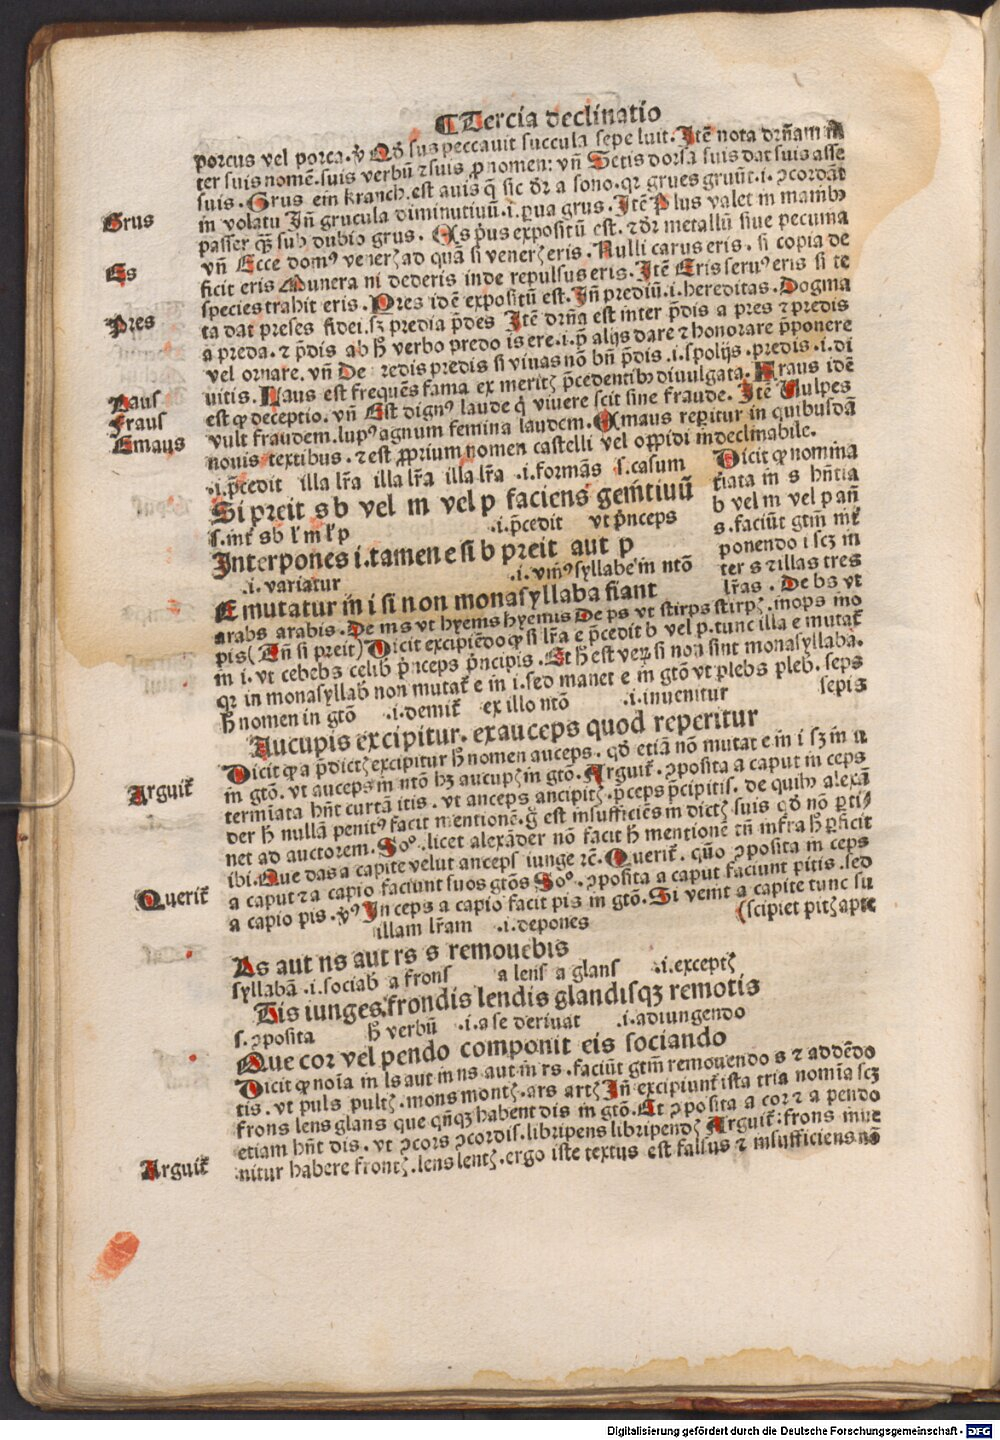 ¶ Tercia declinatio
porcus vel porca. vͤ Qd̄ sus peccauit succula sepe luit. Itē nota dr̄ñam in
ter suis nomē. suis verbū ⁊ suis ꝓnomen: vñ Setis dorsa suis dat suis asse
suis. Grus ein kranch. est auis q̄ sic dr̄ a sono. qr grues gruūt .i. ꝯcordāt
Grus
in volatu Iñ grucula diminutiuū .i. ꝑua grus. Itē Plus valet in manibꝫ
passer qꝫ sub dubio grus. Es p̄us expositū est. ⁊ dr̄ metallū siue pecunia
Es
vñ Ecce domꝰ venerꝫ ad quā si venerꝫ eris. Nulli carus eris. si copia de
ficit eris Munera ni dederis inde repulsus eris. Itē Eris seruꝰ eris si te
species trahit eris. Pres idē expositū est. Iñ prediū .i. hereditas. Dogma
Pres
ta dat preses fidei. sꝫ predia p̄des Itē dr̄ña est inter p̄dis a pres ⁊ predis
a preda. ⁊ p̄dis ab h̄ verbo predo is ere .i. p̄ alijs dare ⁊ honorare p̄ponere
vel ornare. vñ De redis predis si viuas nō bñ p̄dis .i. spolijs. predis .i. di
uitis. Naus est frequēs fama ex meritꝫ p̄cedentibꝫ diuulgata. Fraus idē
Naus
est qꝫ deceptio. vñ Est dignꝰ laude q̇ viuere scit sine fraude. Itē Vulpes
Fraus
vult fraudem. lupꝰ agnum femina laudem. Emaus reperitur in quibusdā
Emaus
nouis textibus. ⁊ est ꝓprium nomen castelli vel oppidi indeclinabile.
.i. p̄cedit illa lr̄a illa lr̄a illa lr̄a .i. formās s. casum
Si preit s b vel m vel p faciens genitiuū
s. int̄ s b ł m ł p .i. p̄cedit vt p̄nceps
Interpones i. tamen e si b preit aut p
.i. variatur .i. vniꝰ syllabe in ntō
E mutatur in i si non monasyllaba fiant
Dicit qꝫ nomina
tiata in s hñtia
b vel m vel p añ
s. faciūt gtm̄ int̄
ponendo i scꝫ in
ter s ⁊ illas tres
lr̄as. De bs vt
arabs arabis. De ms vt hyems hyemis De ps vt stirps stirpꝫ. inops ino
pis (Tn̄ si preit) Dicit excipiēdo qꝫ si lr̄a e p̄cedit b vel p. tunc illa e mutat̄
in i. vt cebebs celib̄ p̄nceps p̄ncipis. Et h̄ est verꝫ si non sint monasyllaba.
qr in monasyllab̄ non mutat̄ e in i. sed manet e in gtō vt plebs pleb. seps
h̄ nomen in gtō .i. demit̄ ex illo ntō .i. inuenitur sepis
Aucupis excipitur. ex auceps quod reperitur
Dicit qꝫ a p̄dictꝫ excipitur h̄ nomen auceps. qd̄ etiā nō mutat e in i sꝫ in u
in gtō. vt auceps in ntō hꝫ aucupꝫ in gtō. Arguit̄. ꝯposita a caput in ceps
Arguit̄
termiata hñt curtā itis. vt anceps ancipitꝫ. p̄ceps p̄cipitis. de quibꝫ alexā
der h̄ nullā penitꝰ facit mentionē. ḡ est insufficiēs in dictꝫ suis qd̄ nō ꝑti/
net ad auctorem. Soᵒ. licet alexāder nō facit h̄ mentionē tn̄ infra h̄ ꝑficit
ibi. Que das a capite velut anceps iunge ⁊c̄. Querit̄. quō ꝯposita in ceps
a caput ⁊ a capio faciunt suos gtōs Soᵒ. ꝯposita a caput faciunt pitis. sed
Querit̄
a capio pis. vͤꝰ In ceps a capio facit pis in gtō. Si venit a capite tunc su
illam lr̄am .i. depones (scipiet pitꝫ apte
Ls aut ns aut rs s remouebis
syllabā .i. sociab̄ a frons a lens a glans .i. exceptꝫ
Tis iunges. frondis lendis glandisqꝫ remotis
s. ꝯposita h̄ verbū .i. a se deriuat .i. adiungendo
Que cor vel pendo componit eis sociando
Dicit qꝫ noīa in ls aut in ns aut in rs. faciūt gtm̄ remouendo s ⁊ addēdo
tis. vt puls pultꝫ. mons montꝫ. ars artꝫ Iñ excipiunt̄ ista tria nomīa scꝫ
frons lens glans que qñqꝫ habent dis in gtō. Et ꝯposita a cor ⁊ a pendo
etiam hñt dis. vt ꝯcors ꝯcordis. libripens libripendꝫ Arguit̄: frons inue
nitur habere frontꝫ. lens lentꝫ. ergo iste textus est falsus ⁊ insufficiens nō
Arguit̄
Digitalisierung gefördert durch die Deutsche Forschungsgemeinschaft - DFG